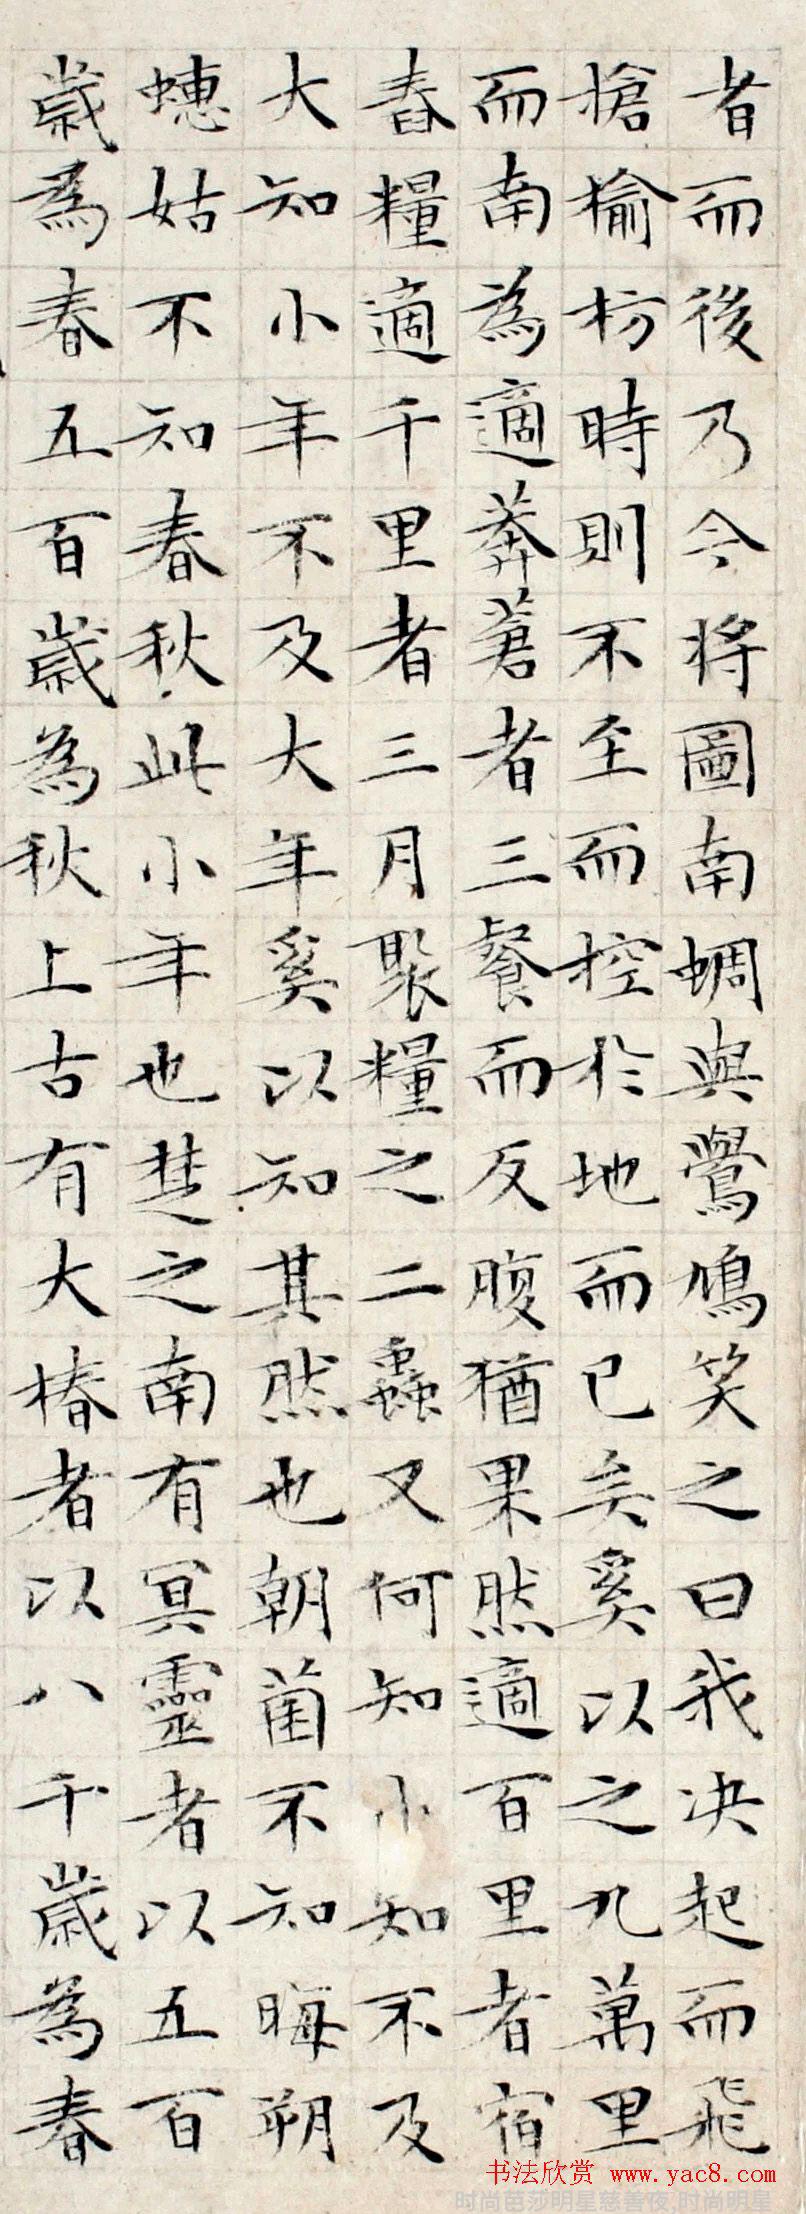 者而後乃今將圖南蜩與鷽鳩笑之曰我決起而飛
搶榆枋時則不至而控於地而已矣奚以之九萬里
而南為適莽蒼者三餐而反腹猶果然適百里者宿
舂糧適千里者三月聚糧之二蟲又何知小知不及
大知小年不及大年奚以知其然也朝菌不知晦朔
蟪姑不知春秋此小年也楚之南有冥靈者以五百
歲為春五百歲為秋上古有大椿者以八千歲為春
书法欣赏 www.yac8.com
时尚芭莎明星慈善夜,时尚明星